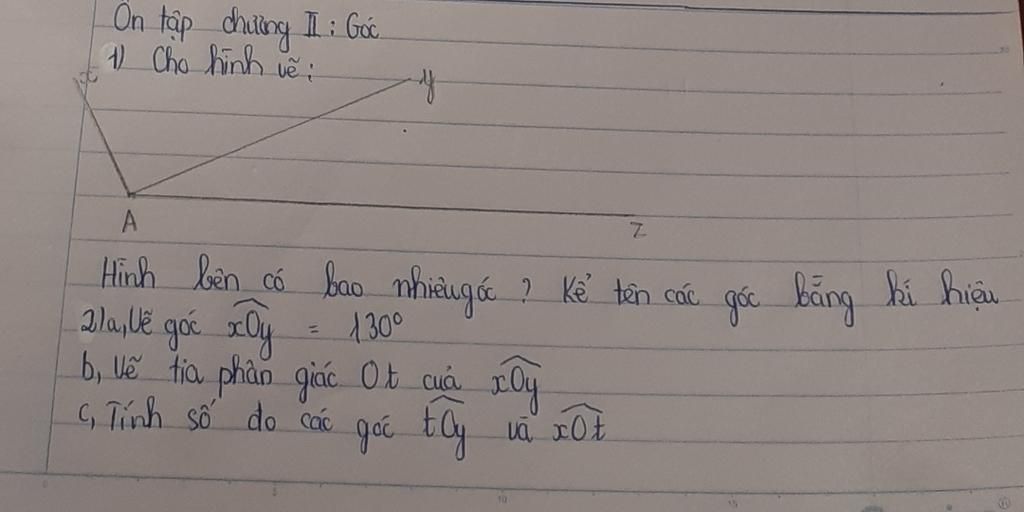 Ôn tập chương II : Góc
1) Cho hình vẽ :
x
y
A
z
Hình bên có bao nhiêu góc ? Kể tên các góc bằng kí hiệu
2) a, Vẽ góc xOy = 130°
b, Vẽ tia phân giác Ot của xOy
c, Tính số đo các góc tOy và xOt
5
10
15